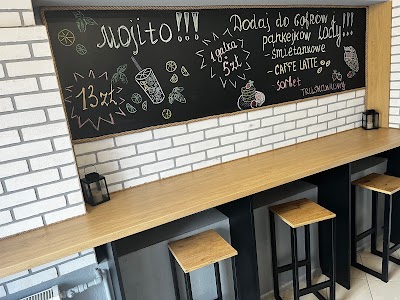 Mojito!!!
13zł
1 gałka
5zł
Dodaj do Gofrów
pankejków Lody!!!
- śmietankowe
- CAFFE LATTE
- sorbet
TRUSKAWKOWY